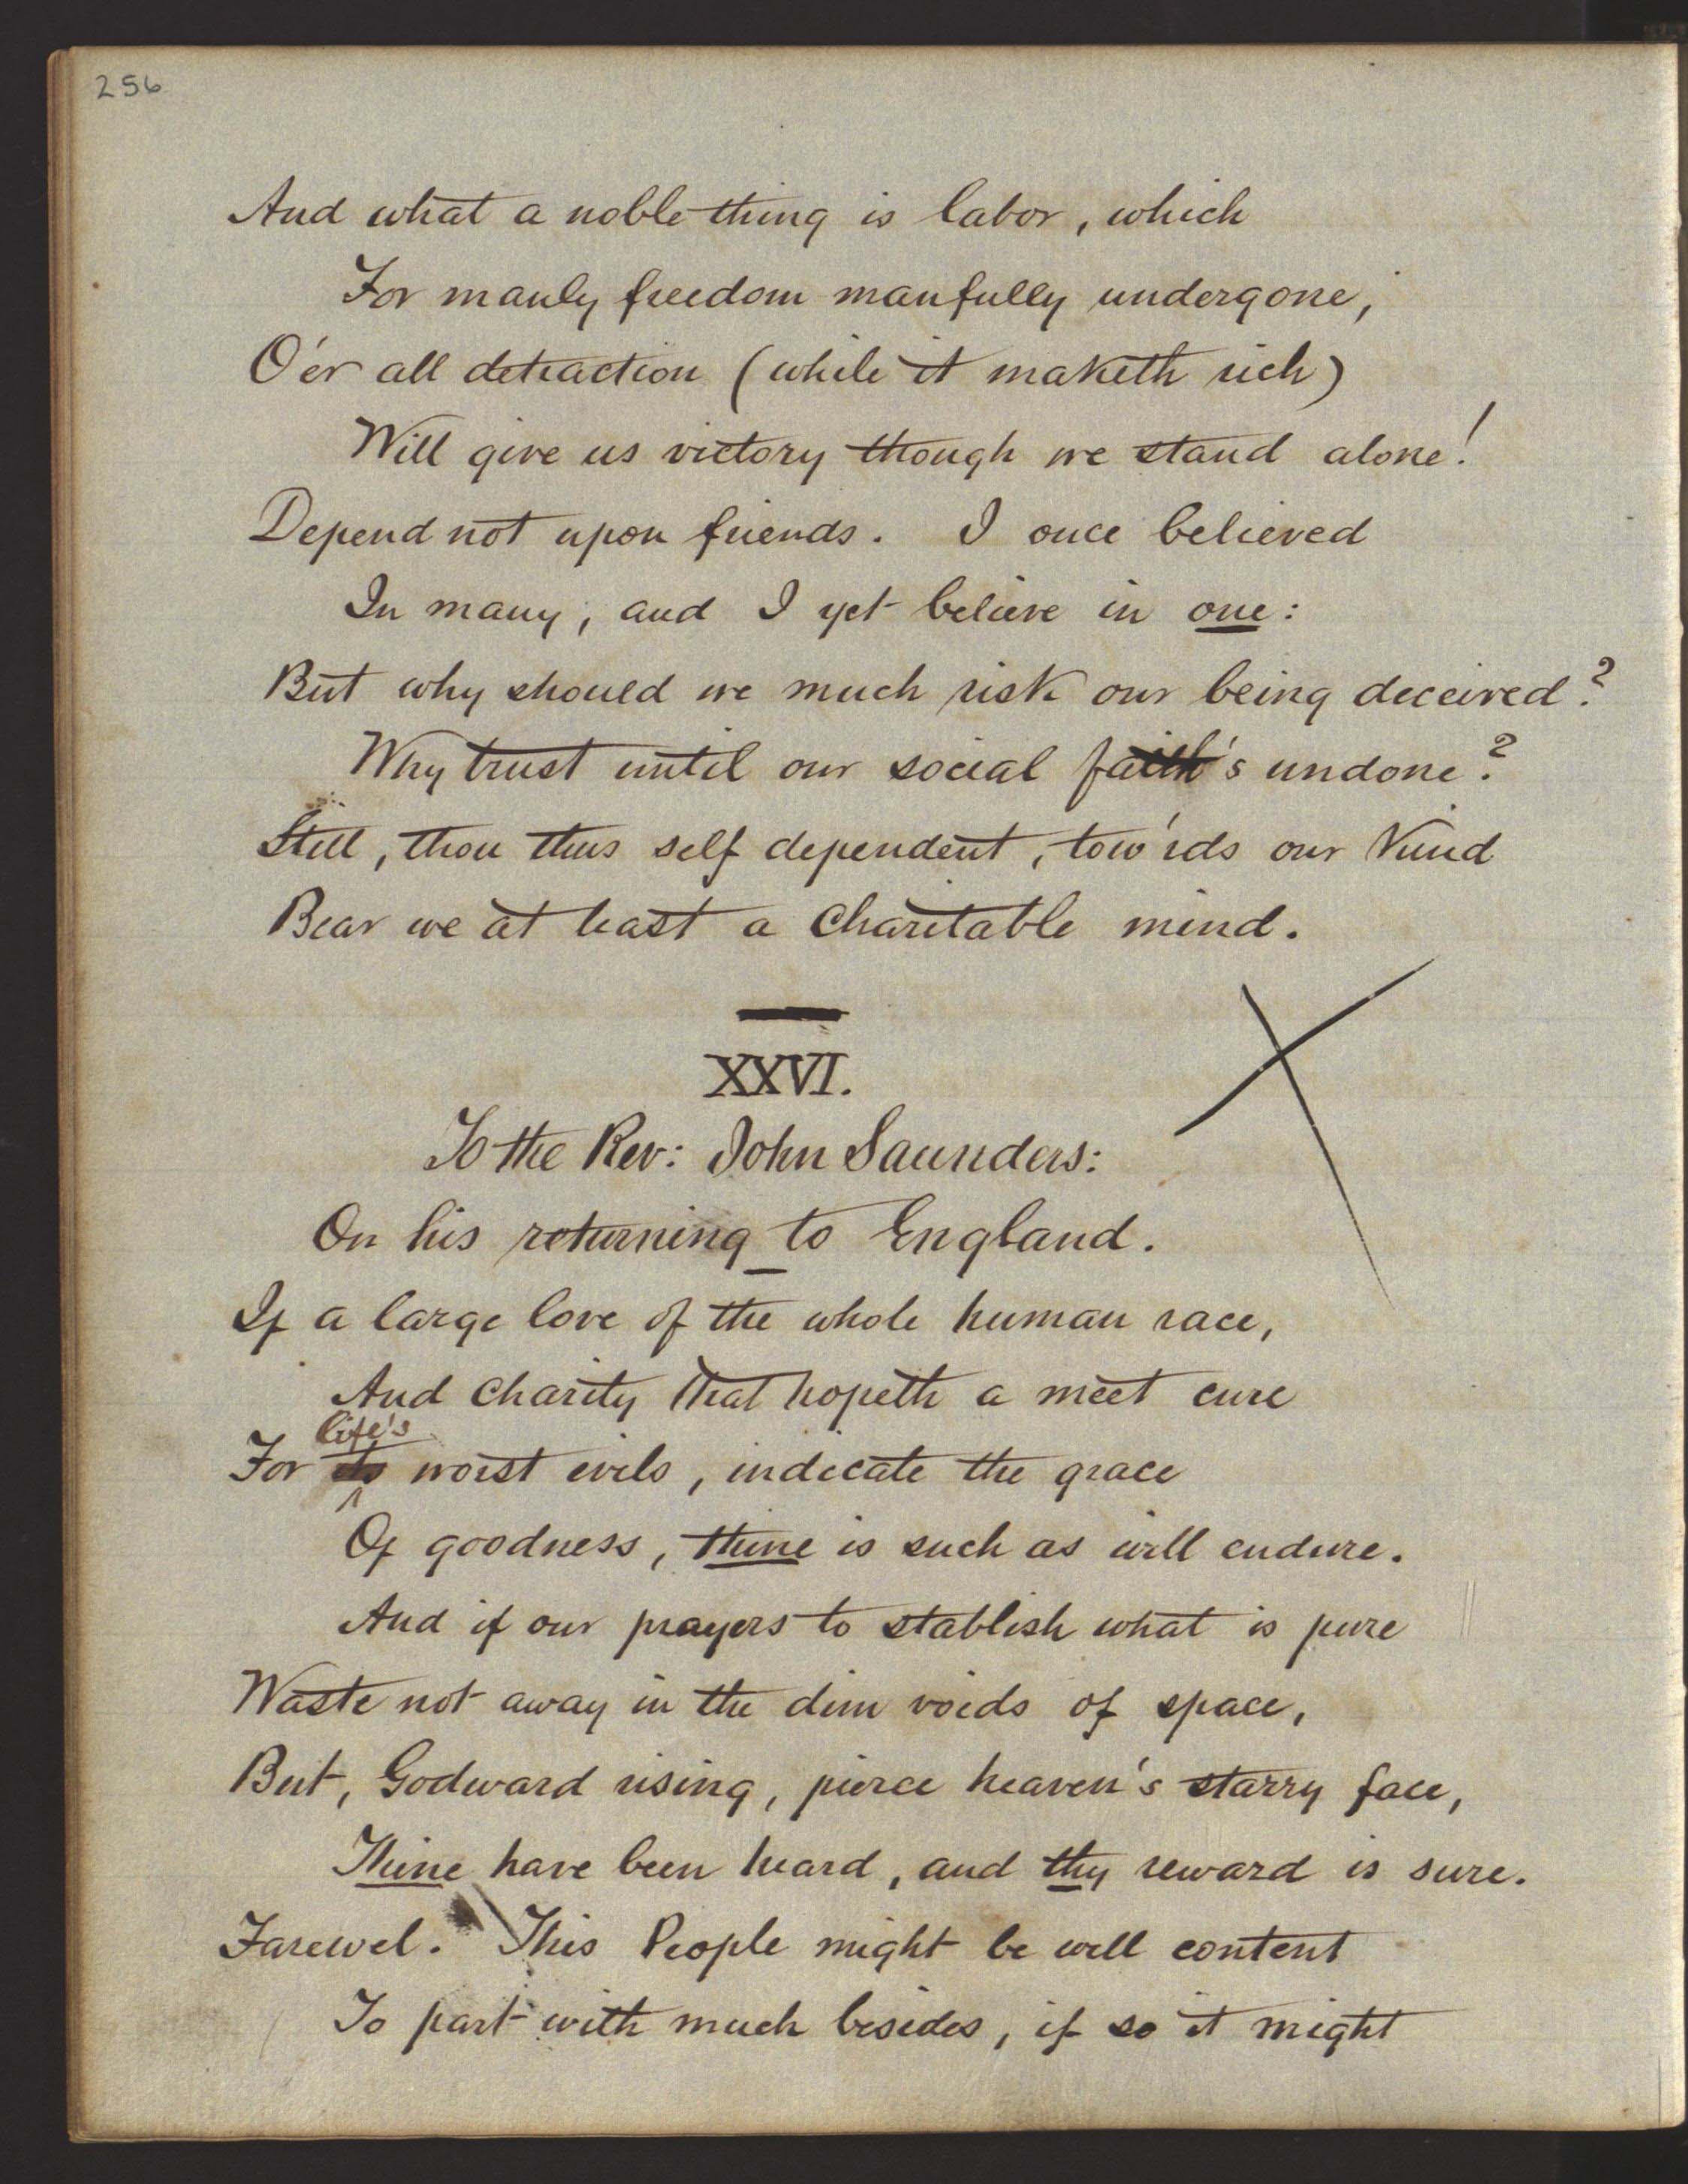 256
And what a noble thing is labor, which
For manly freedom manfully undergone,
O'er all detraction (while it maketh rich)
Will give us victory though we stand alone!
Depend not upon friends. I once believed
In many, and I yet believe in one:
But why should we much risk our being deceived?
Why trust until our social faith's undone?
Still, thou thus self dependent, tow'rds our Kind
Bear we at least a charitable mind.
XXVI.
To the Rev: John Saunders:
On his returning to England.
If a large love of the whole human race,
And charity that hopeth a meet cure
life's
For its worst evils, indicate the grace
Of goodness, thine is such as will endure.
And if our prayers to stablish what is pure
Waste not away in the dim voids of space,
But, Godward rising, pierce heaven's starry face,
Thine have been heard, and thy reward is sure.
Farewel. This People might be well content
To part with much besides, if so it might